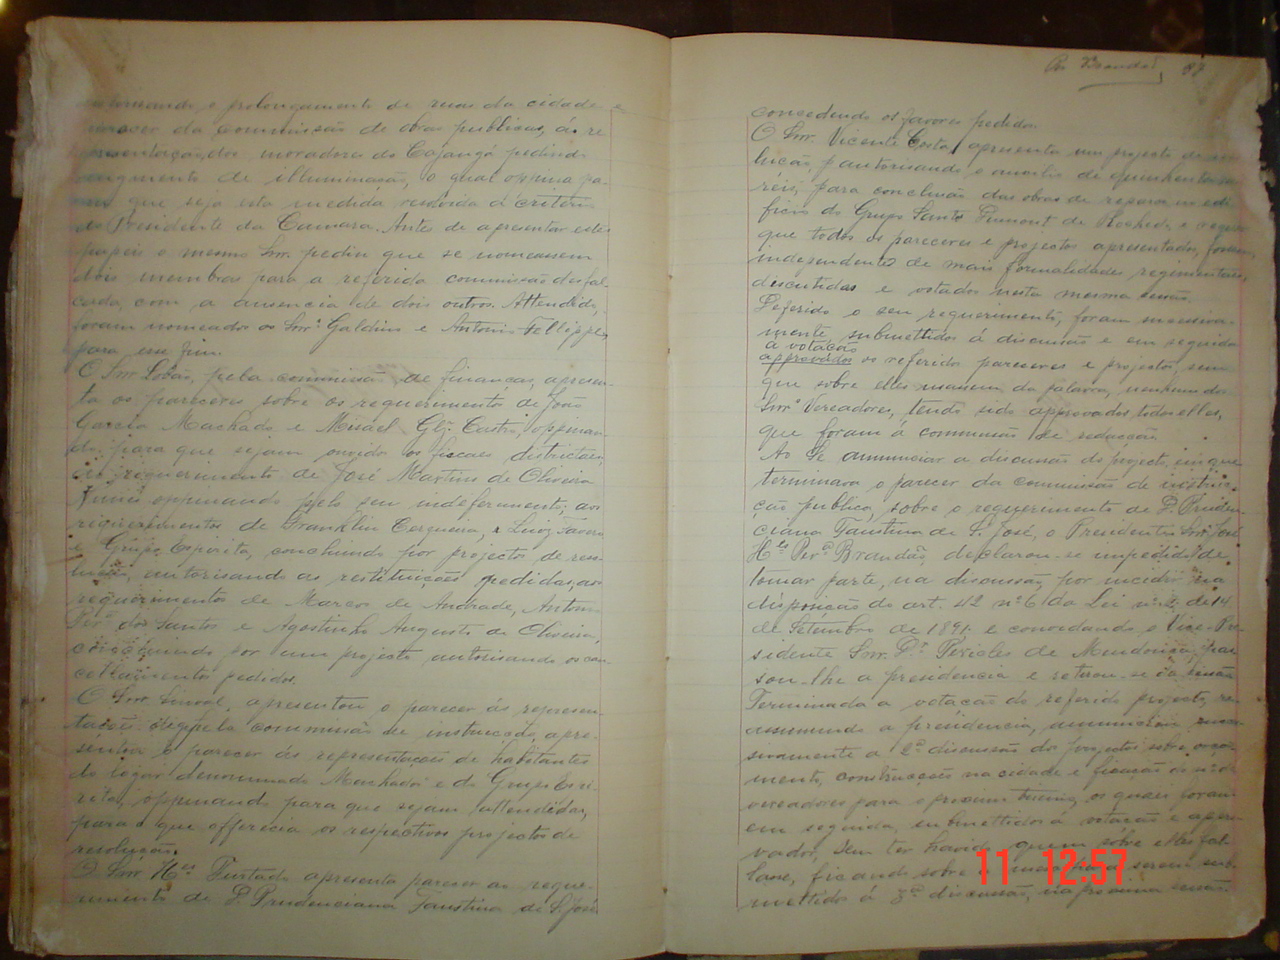 autorisando o prolongamento de ruas da cidade e
parecer da Commissão de obras publicas, ás re
presentação, dos moradores do Cajangá pedindo
de illuminação, o qual oppina pa-
que seja esta medida resolvida á criterio
do Presidente da Camara. Antes de apresentar estes
papeis o mesmo Snr. pediu que se nomeassem
dois membros para a referida commissão desfal-
cada, com a ausencia de dois outros. Attendido,
foram nomeados os Snrs. Galdino e Antonio Fellippe,
para esse fim.
O Snr Lobão, pela commissão de finanças, apresen-
ta os pareceres sobre os requerimentos de João
Garcia Machado e Misael Castro, oppinan-
do, para que sejam ouvidos os fiscaes districtaes,
requerimento de José Martins de Oliveira
oppinando pelo seu indeferimento; aos
requerimentos de Franklin Cerqueira, e Luiz Tavares
e Grupo Espirita, concluindo por projectos de reso-
lução, autorisando as restituições pedidas, aos
requerimentos de Marcos de Andrade, Antonio
Perª. dos Santos e Agostinho Augusto de Oliveira,
concluindo por um projecto autorisando os can-
cellamentos pedidos.
O Snr Sinval, apresentou o parecer ás represen-
pela commissão de instrucção, apre-
sentou o parecer ás representações de habitantes
do logar denominado Machados e do Grupo Espi-
rita, oppinando para que sejam attendidas,
para o que offerecia os respectivos projectos de
resolução.
O Snr Hes Furtado apresenta parecer ao reque-
rimento de D. Prudenciana Faustina de S. José
Per Brandão 87
concedendo os favores pedidos.
O Snr. Vicente Costa, apresenta um projecto de reso-
lução, autorisando o auxilio de quinhentos mil
réis, para conclusão das obras de reparos no edi-
ficio do Grupo Santos Dumont de Rochedo e requer
que todos os pareceres e projectos apresentados, fossem,
independente de mais formalidades regimentaes,
discutidas e votados nesta mesma sessão.
Deferido o seu requerimento, foram successiva-
mente, submettidos á discussão e em seguida
a votação
approvados os referidos pareceres e projectos, sem
que sobre elles usassem da palavra, nenhum dos
Snrs Vereadores, tendo sido approvados todos elles,
que foram á commissão de redacção.
Ao se annunciar a discussão do projecto, em que
terminava o parecer da commissão de instruc-
ção publica, sobre o requerimento de D. Pruden-
ciana Faustina de S. José, o Presidente Snr. José
Hes Perª Brandão, declarou-se impedido de
tomar parte, na discussão, por incidir na
disposição do art. 42 nº 6 da Lei nº 2, de 14
de Setembro de 1891, e convidando o Vice-Pre-
sidente Snr. Dr Pericles de Mendonça, pas-
sou-lhe a presidencia e retirou-se da sessão
Terminada a votação do referido projecto, re-
assumindo a presidencia, annunciou succes-
sivamente a 2ª discussão dos projectos sobre orça-
mento, construcções na cidade e fixação do nº de
vereadores para o proximo triennio, os quaes foram
em seguida, submettidos á votação e appro-
vados, sem ter havido quem sobre elles fal-
lasse, ficando sobre a mesa para serem sub-
mettidos á 3ª discussão, na proxima sessão.
11 12:57